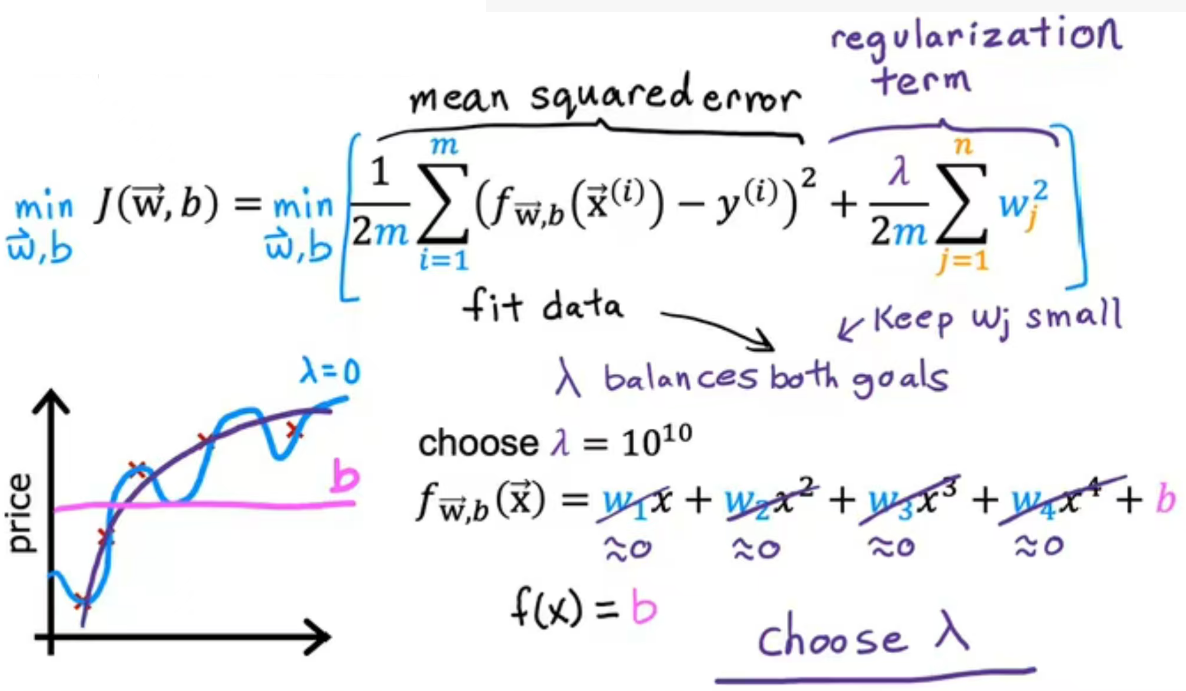 regularization
term
mean squared error
min J(w⃗, b) = min [ 1/2m ∑ (f w⃗,b (x⃗⁽ⁱ⁾) − y⁽ⁱ⁾)² + λ/2m ∑ wⱼ² ]
w⃗,b w⃗,b m i=1 n j=1
fit data
Keep wj small
λ balances both goals
λ=0
choose λ = 10¹⁰
b
f w⃗,b (x⃗) = w₁x + w₂x² + w₃x³ + w₄x⁴ + b
≈0 ≈0 ≈0 ≈0
price
f(x) = b
choose λ